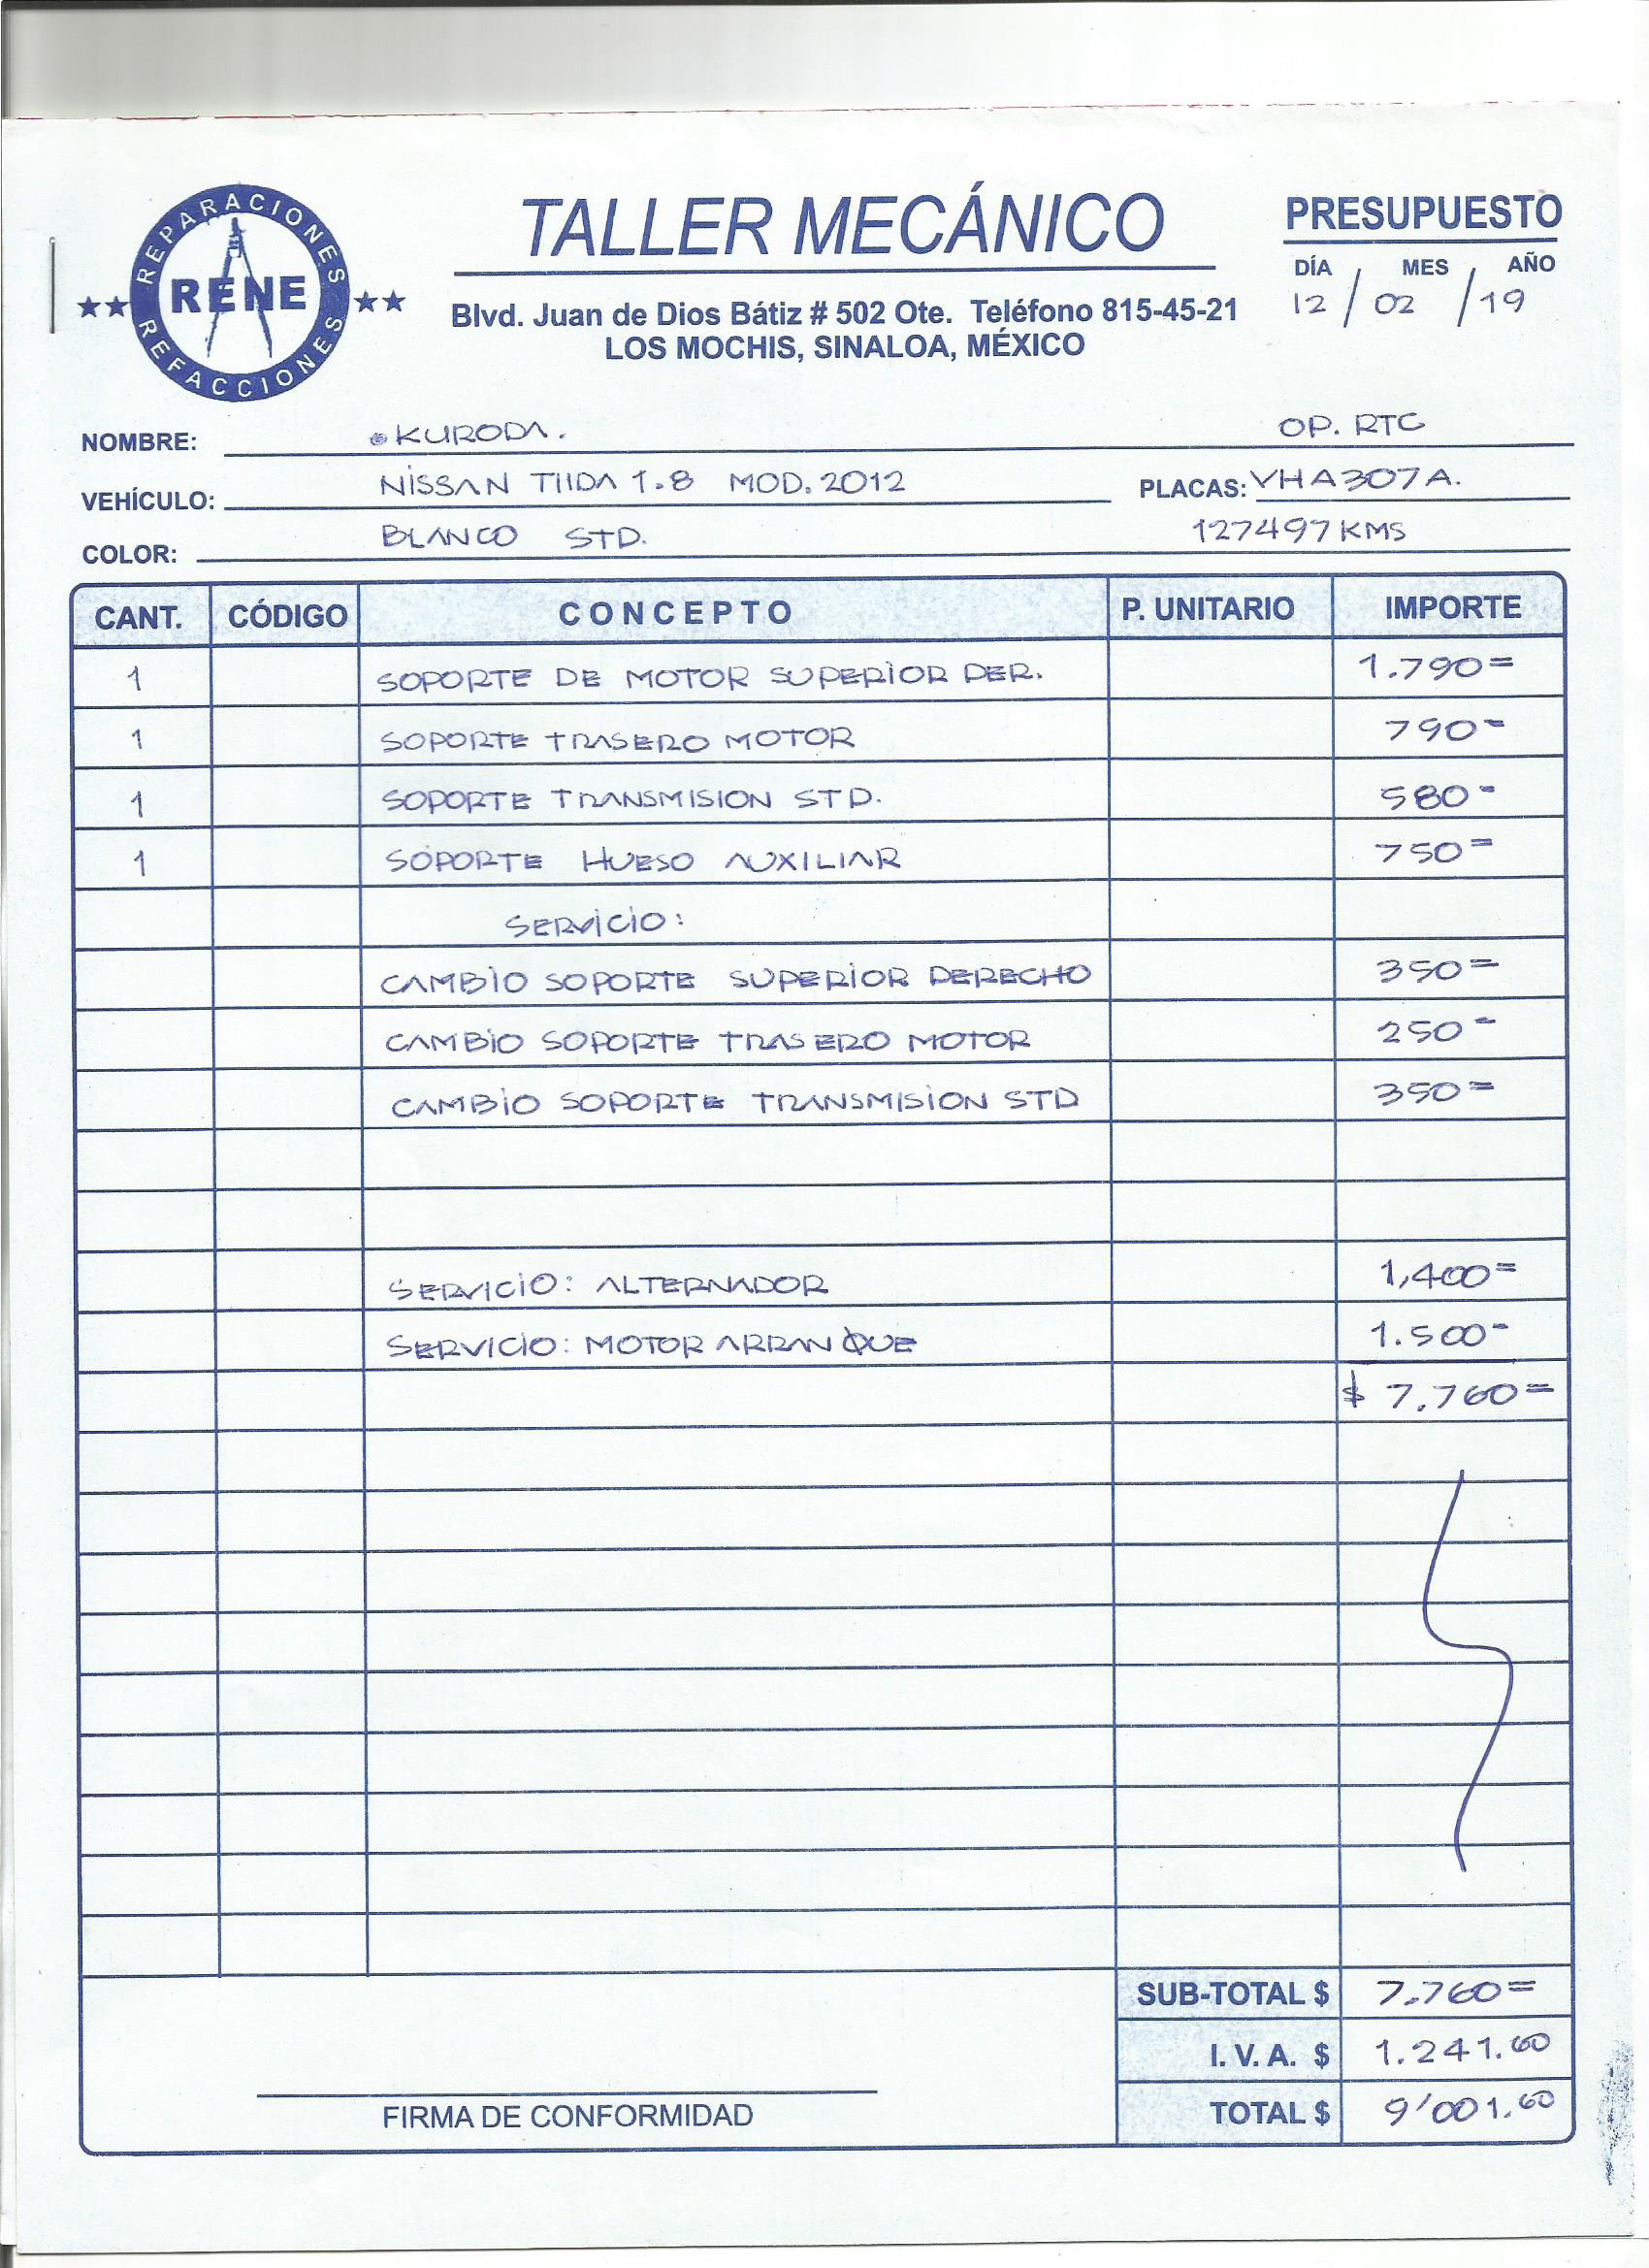 REPARACIONES
RENE
REFACCIONES
TALLER MECÁNICO
Blvd. Juan de Dios Bátiz # 502 Ote. Teléfono 815-45-21
LOS MOCHIS, SINALOA, MÉXICO
PRESUPUESTO
DÍA / MES / AÑO
12 / 02 / 19
NOMBRE: KURODA. OP. RTC
VEHÍCULO: NISSAN TIIDA 1.8 MOD. 2012 PLACAS: VHA307A.
COLOR: BLANCO STD. 127497 KMS
CANT. CÓDIGO CONCEPTO P. UNITARIO IMPORTE
1 SOPORTE DE MOTOR SUPERIOR DER. 1.790=
1 SOPORTE TRASERO MOTOR 790=
1 SOPORTE TRANSMISION STD. 580=
1 SOPORTE HUESO AUXILIAR 750=
SERVICIO:
CAMBIO SOPORTE SUPERIOR DERECHO 350=
CAMBIO SOPORTE TRASERO MOTOR 250=
CAMBIO SOPORTE TRANSMISION STD 350=
SERVICIO: ALTERNADOR 1,400=
SERVICIO: MOTOR ARRANQUE 1.500=
$ 7.760=
SUB-TOTAL $ 7.760=
I. V. A. $ 1.241.60
TOTAL $ 9'001.60
FIRMA DE CONFORMIDAD